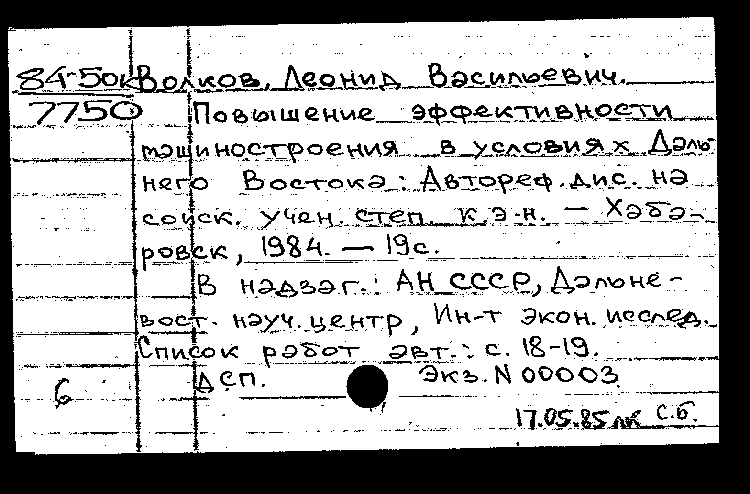 84-50к Волков, Леонид Васильевич.
7750 Повышение эффективности
машиностроения в условиях Даль-
него Востока: Автореф. дис. на
соиск. учен. степ. к.э.н. — Хаба-
ровск, 1984. — 19с.
В надзаг.: АН СССР, Дальне-
вост. науч. центр, Ин-т экон. исслед.
Список работ авт.: с. 18-19.
6 ДСП. Экз. N 00003
17.05.85 лк с.б.